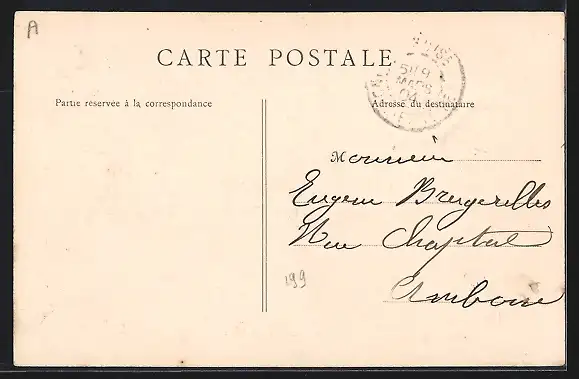 A
CARTE POSTALE
Partie réservée à la correspondance
Adresse du destinataire
5 9
MARS
04
Monsieur
Eugene Brugerilles
Rue Chaptal
Amboise
199